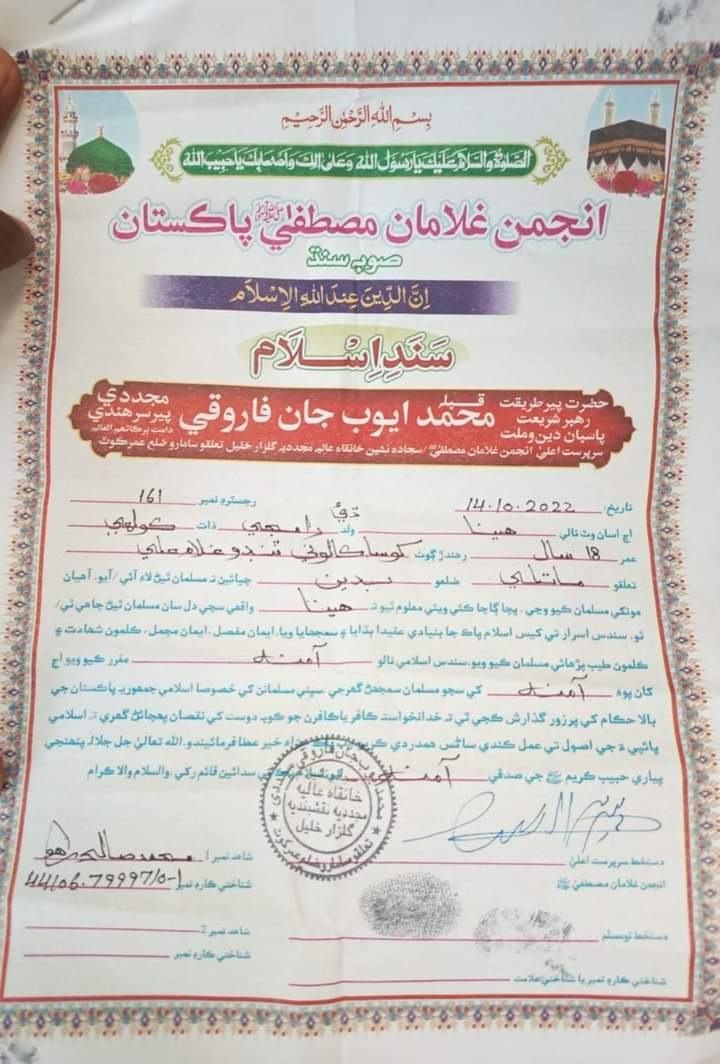 بِسْمِ اللهِ الرَّحْمٰنِ الرَّحِيْمِ
اَلصَّلوٰةُ وَالسَّلَامُ عَلَيْكَ يَا رَسُوْلَ اللهِ وَعَلىٰ اٰلِكَ وَاَصْحَابِكَ يَا حَبِيْبَ اللهِ
انجمن غلامان مصطفيٰ ﷺ پاڪستان
صوبہ سنڌ
اِنَّ الدِّيْنَ عِنْدَ اللهِ الْاِسْلَام
سَنَدِ اِسْلَام
حضرت پير طريقت
رهبر شريعت
پاسبان دين و ملت
قبله محمد ايوب جان فاروقي
مجددي
پير سرهندي
دامت برڪاتهم العاليه
سرپرست اعليٰ انجمن غلامان مصطفيٰ ﷺ / سجاده نشين خانقاه عاليه مجدديه گلزار خليل تعلقو سامارو ضلع عمرڪوٽ
تاريخ: 14.10.2022 رجسٽرڊ نمبر 161
اڄ اسان وٽ نالي هينا ولد ڌيءُ رامجي ذات ڪولهي
عمر 18 سال رهندڙ ڳوٺ ڪوسا ڪالوني ٽنڊو غلام علي
تعلقو ماتلي ضلعو بدين چيائين تہ مسلمان ٿيڻ لاءِ آئي / آيو. آهيان
مونکي مسلمان ڪيو وڃي. پڇا ڳاڇا ڪئي ويئي معلوم ٿيو تہ هينا واقعي سچي دل سان مسلمان ٿيڻ چاهي ٿي/
ٿو. سندس اسرار تي کيس اسلام پاڪ جا بنيادي عقيدا ٻڌايا ۽ سمجهايا ويا. ايمان مفصل، ايمان مجمل، ڪلمون شهادت ۽
ڪلمون طيب پڙهائي مسلمان ڪيو ويو. سندس اسلامي نالو آمنه مقرر ڪيو ويو اڄ
کان پوءِ آمنه کي سچو مسلمان سمجهڻ گهرجي. سڀني مسلمانن کي خصوصا اسلامي جمهوريه پاڪستان جي
بالا حڪام کي پرزور گذارش ڪجي ٿي تہ خدانخواستہ ڪافر يا ڪافرن جو ڪوبہ دوست کي نقصان پهچائڻ گهري تہ اسلامي
ڀائپي ۽ جي اصول تي عمل ڪندي ساڻس همدردي ڪريو خير عطا فرمائيندو. الله تعاليٰ جل جلالہ پنهنجي
پياري حبيب ڪريم ﷺ جي صدقي آمنه کي سدائين قائم رکي. والسلام والا ڪرام
محمد ايوب جان فاروقي مجددي
خانقاه عاليه
مجدديه نقشبنديه
گلزار خليل
تعلقو سامارو ضلع عمرڪوٽ
دستخط سرپرست اعليٰ
انجمن غلامان مصطفيٰ ﷺ
شاهد نمبر 1 محمد صالح
شناختي ڪارڊ نمبر 44106-7999710-1
دستخط نومسلم
شاهد نمبر 2
شناختي ڪارڊ نمبر
شناختي ڪارڊ نمبر يا شناختي علامت